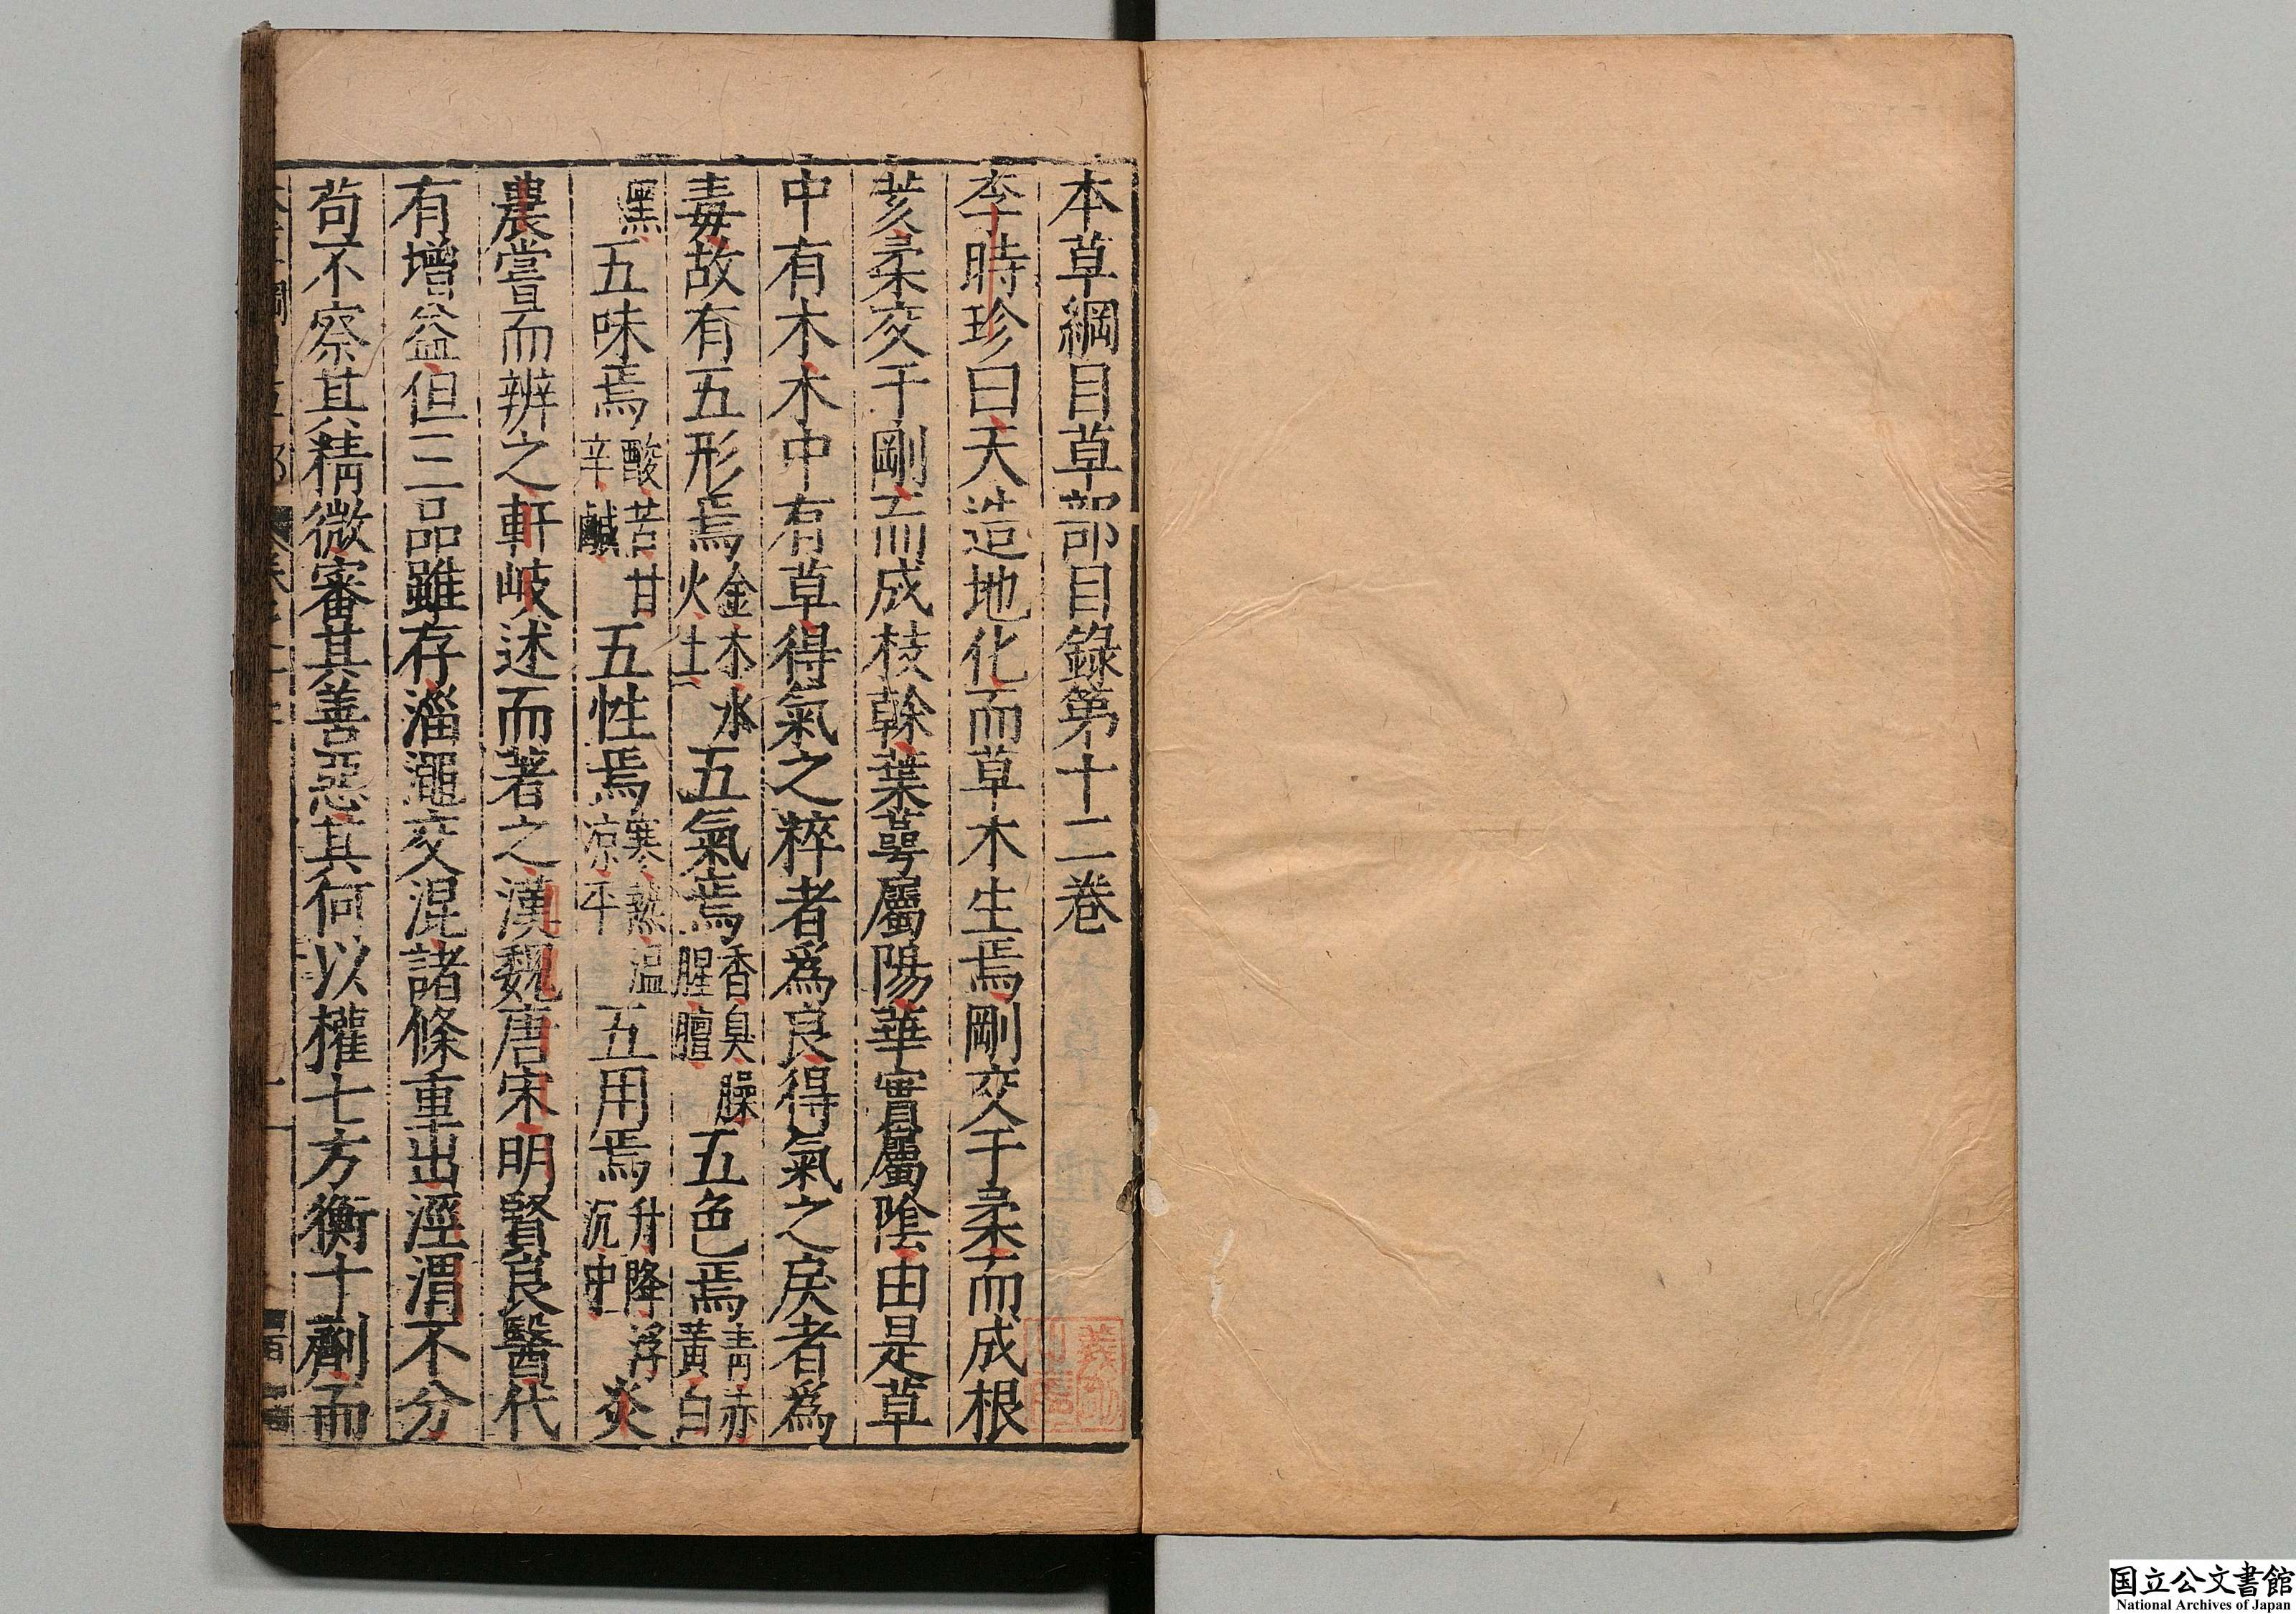 本草綱目草部目錄第十二卷
李時珍曰天造地化而草木生焉剛交于柔而成根
荄柔交于剛而成枝榦葉萼屬陽華實屬陰由是草
中有木木中有草得氣之粹者爲良得氣之戾者爲
毒故有五形焉金木水火土五氣焉香臭臊腥膻五色焉青赤黃白
黑五味焉酸苦甘辛鹹五性焉寒熱溫涼平五用焉升降浮沉中炎
農嘗而辨之軒岐述而著之漢魏唐宋明賢良醫代
有增益但三品雖存淄澠交混諸條重出涇渭不分
茍不察其精微審其善惡其何以權七方衡十劑而
国立公文書館
National Archives of Japan